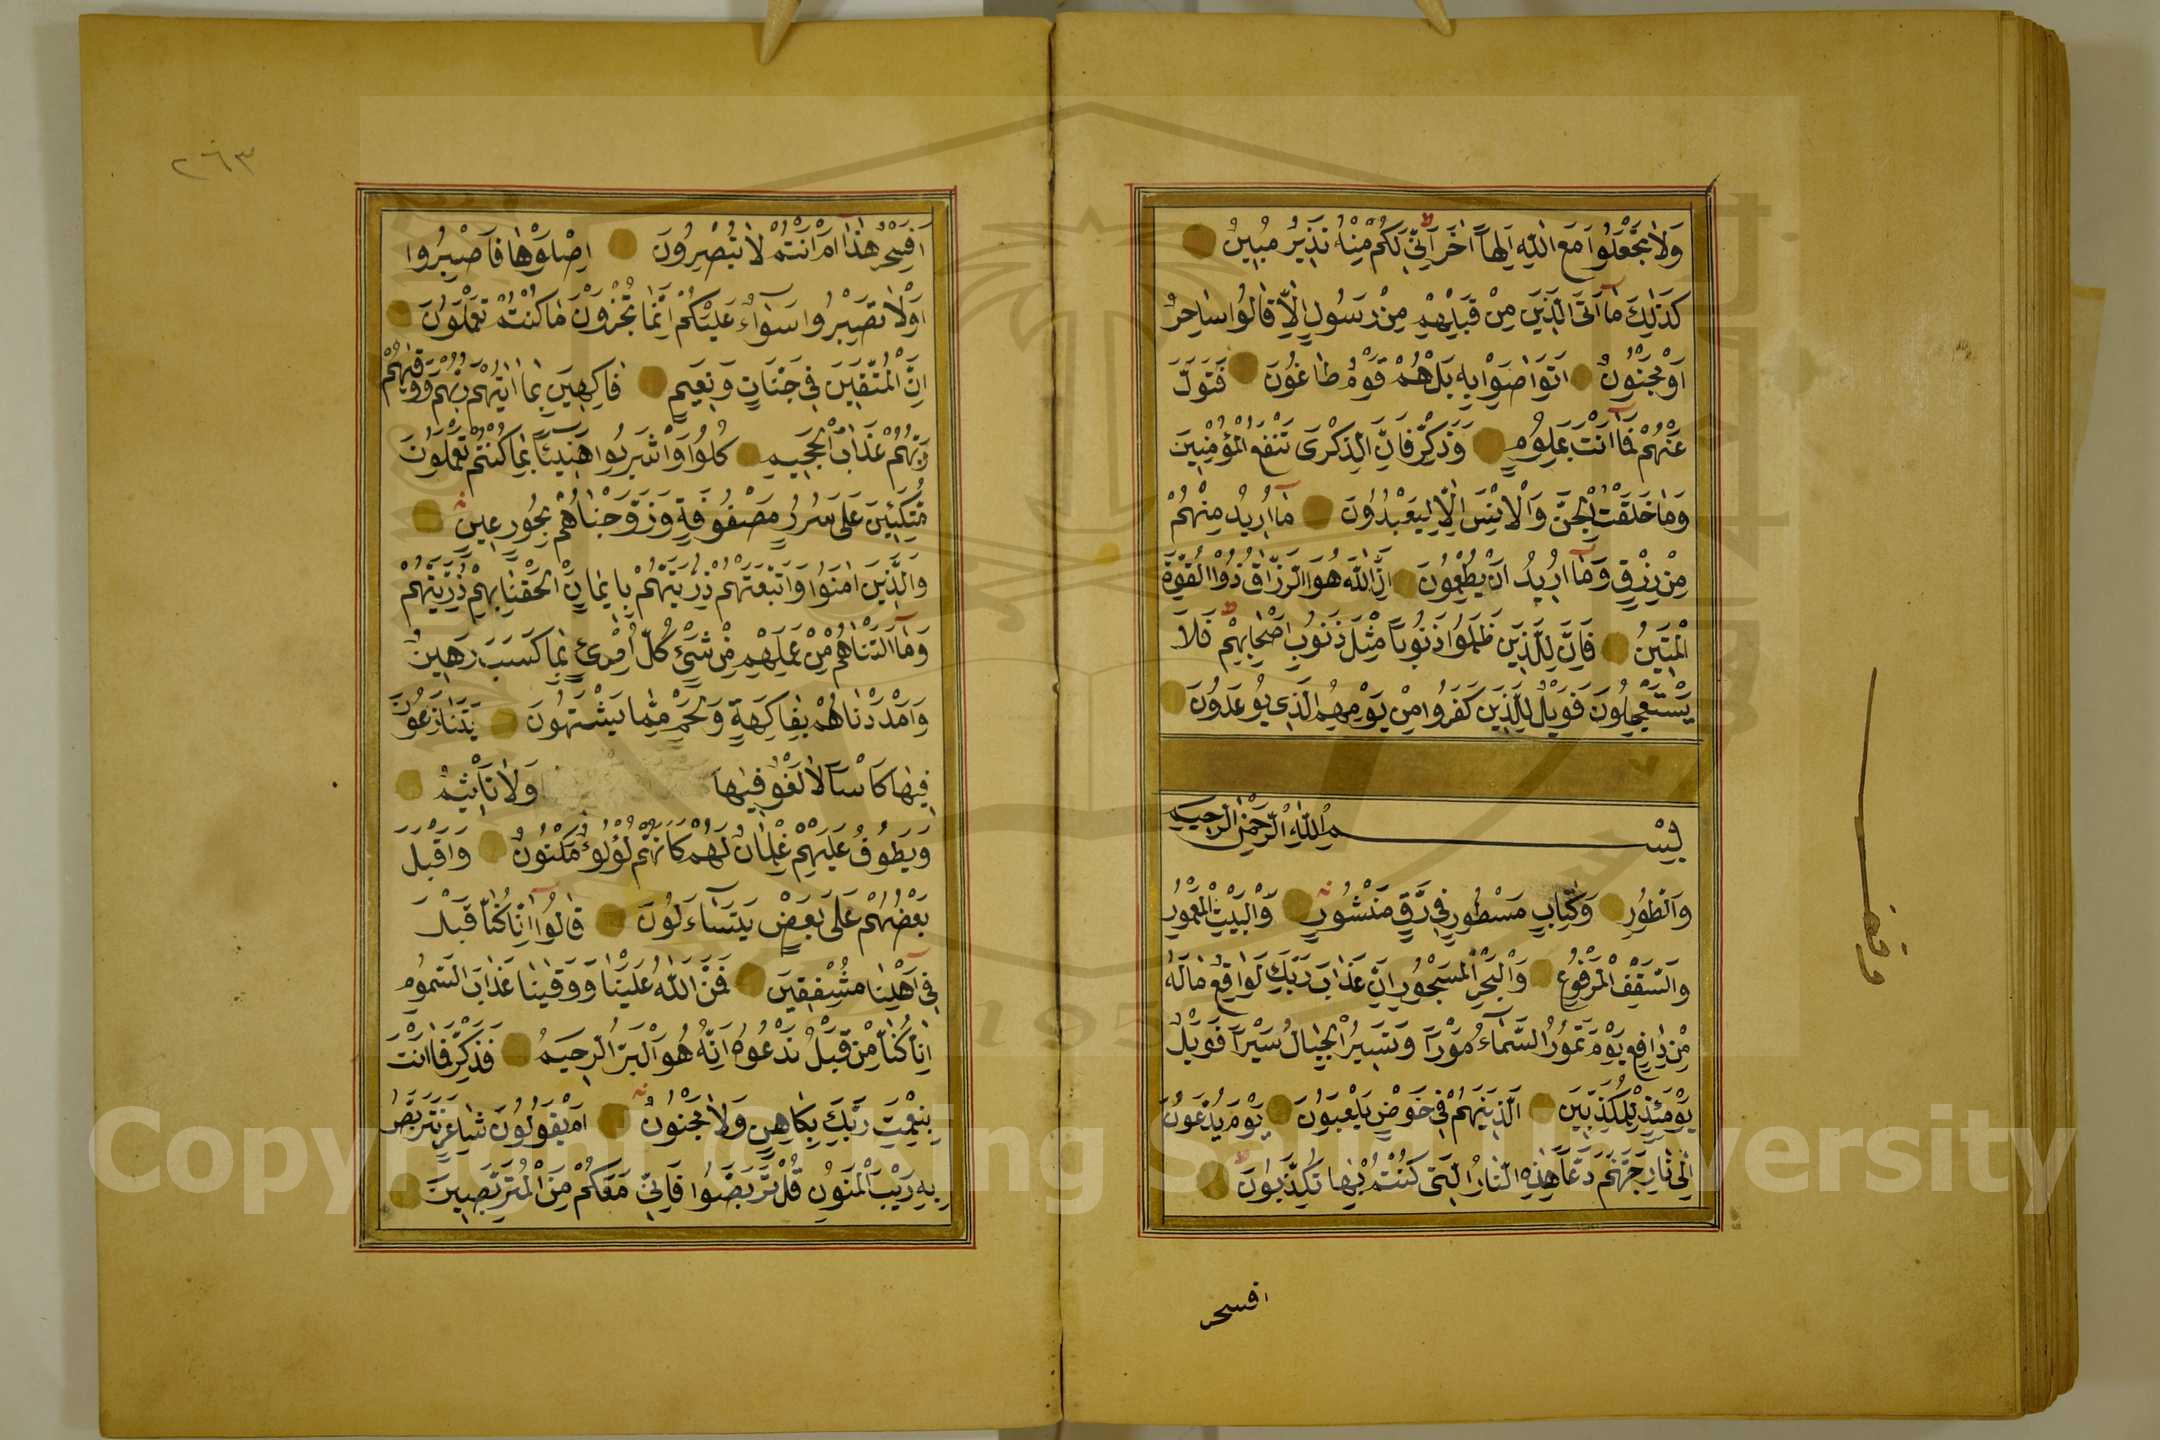 وَلَا تَجْعَلُوا مَعَ اللّٰهِ اِلٰهًا اٰخَرَ اِنّٖي لَكُمْ مِنْهُ نَذٖيرٌ مُبٖينٌ
كَذٰلِكَ مَٓا اَتَى الَّذٖينَ مِنْ قَبْلِهِمْ مِنْ رَسُولٍ اِلَّا قَالُوا سَاحِرٌ
اَوْ مَجْنُونٌ اَتَوَاصَوْا بِهٖ بَلْ هُمْ قَوْمٌ طَاغُونَ فَتَوَلَّ
عَنْهُمْ فَمَٓا اَنْتَ بِمَلُومٍ وَذَكِّرْ فَاِنَّ الذِّكْرٰى تَنْفَعُ الْمُؤْمِنٖينَ
وَمَا خَلَقْتُ الْجِنَّ وَالْاِنْسَ اِلَّا لِيَعْبُدُونَ مَٓا اُرٖيدُ مِنْهُمْ
مِنْ رِزْقٍ وَمَٓا اُرٖيدُ اَنْ يُطْعِمُونَ اِنَّ اللّٰهَ هُوَ الرَّزَّاقُ ذُو الْقُوَّةِ
الْمَتٖينُ فَاِنَّ لِلَّذٖينَ ظَلَمُوا ذَنُوبًا مِثْلَ ذَنُوبِ اَصْحَابِهِمْ فَلَا
يَسْتَعْجِلُونَ فَوَيْلٌ لِلَّذٖينَ كَفَرُوا مِنْ يَوْمِهِمُ الَّذٖي يُوعَدُونَ
بِسْمِ اللّٰهِ الرَّحْمٰنِ الرَّحٖيمِ
وَالطُّورِ وَكِتَابٍ مَسْطُورٍ فٖي رَقٍّ مَنْشُورٍ وَالْبَيْتِ الْمَعْمُورِ
وَالسَّقْفِ الْمَرْفُوعِ وَالْبَحْرِ الْمَسْجُورِ اِنَّ عَذَابَ رَبِّكَ لَوَاقِعٌ مَا لَهُ
مِنْ دَافِعٍ يَوْمَ تَمُورُ السَّمَٓاءُ مَوْرًا وَتَسٖيرُ الْجِبَالُ سَيْرًا فَوَيْلٌ
يَوْمَئِذٍ لِلْمُكَذِّبٖينَ الَّذٖينَ هُمْ فٖي خَوْضٍ يَلْعَبُونَ يَوْمَ يُدَعُّونَ
اِلٰى نَارِ جَهَنَّمَ دَعًّا هٰذِهِ النَّارُ الَّتٖي كُنْتُمْ بِهَا تُكَذِّبُونَ
افسحر
وقف
٢٦٣
اَفَسِحْرٌ هٰذَٓا اَمْ اَنْتُمْ لَا تُبْصِرُونَ اِصْلَوْهَا فَاصْبِرُوا
اَوْ لَا تَصْبِرُوا سَوَٓاءٌ عَلَيْكُمْ اِنَّمَا تُجْزَوْنَ مَا كُنْتُمْ تَعْمَلُونَ
اِنَّ الْمُتَّقٖينَ فٖي جَنَّاتٍ وَنَعٖيمٍ فَاكِهٖينَ بِمَٓا اٰتٰيهُمْ رَبُّهُمْ وَوَقٰيهُمْ
رَبُّهُمْ عَذَابَ الْجَحٖيمِ كُلُوا وَاشْرَبُوا هَنٖيٓئًا بِمَا كُنْتُمْ تَعْمَلُونَ
مُتَّكِئٖينَ عَلٰى سُرُرٍ مَصْفُوفَةٍ وَزَوَّجْنَاهُمْ بِحُورٍ عٖينٍ
وَالَّذٖينَ اٰمَنُوا وَاتَّبَعَتْهُمْ ذُرِّيَّتُهُمْ بِاٖيمَانٍ اَلْحَقْنَا بِهِمْ ذُرِّيَّتَهُمْ
وَمَٓا اَلَتْنَاهُمْ مِنْ عَمَلِهِمْ مِنْ شَيْءٍ كُلُّ امْرِئٍ بِمَا كَسَبَ رَهٖينٌ
وَاَمْدَدْنَاهُمْ بِفَاكِهَةٍ وَلَحْمٍ مِمَّا يَشْتَهُونَ يَتَنَازَعُونَ
فٖيهَا كَاْسًا لَا لَغْوٌ فٖيهَا وَلَا تَاْثٖيمٌ
وَيَطُوفُ عَلَيْهِمْ غِلْمَانٌ لَهُمْ كَاَنَّهُمْ لُؤْلُؤٌ مَكْنُونٌ وَاَقْبَلَ
بَعْضُهُمْ عَلٰى بَعْضٍ يَتَسَٓاءَلُونَ قَالُٓوا اِنَّا كُنَّا قَبْلُ
فٖٓي اَهْلِنَا مُشْفِقٖينَ فَمَنَّ اللّٰهُ عَلَيْنَا وَوَقٰينَا عَذَابَ السَّمُومِ
اِنَّا كُنَّا مِنْ قَبْلُ نَدْعُوهُ اِنَّهُ هُوَ الْبَرُّ الرَّحٖيمُ فَذَكِّرْ فَمَٓا اَنْتَ
بِنِعْمَتِ رَبِّكَ بِكَاهِنٍ وَلَا مَجْنُونٍ اَمْ يَقُولُونَ شَاعِرٌ نَتَرَبَّصُ
بِهٖ رَيْبَ الْمَنُونِ قُلْ تَرَبَّصُوا فَاِنّٖي مَعَكُمْ مِنَ الْمُتَرَبِّصٖينَ
Copyright © King Saud University
1957